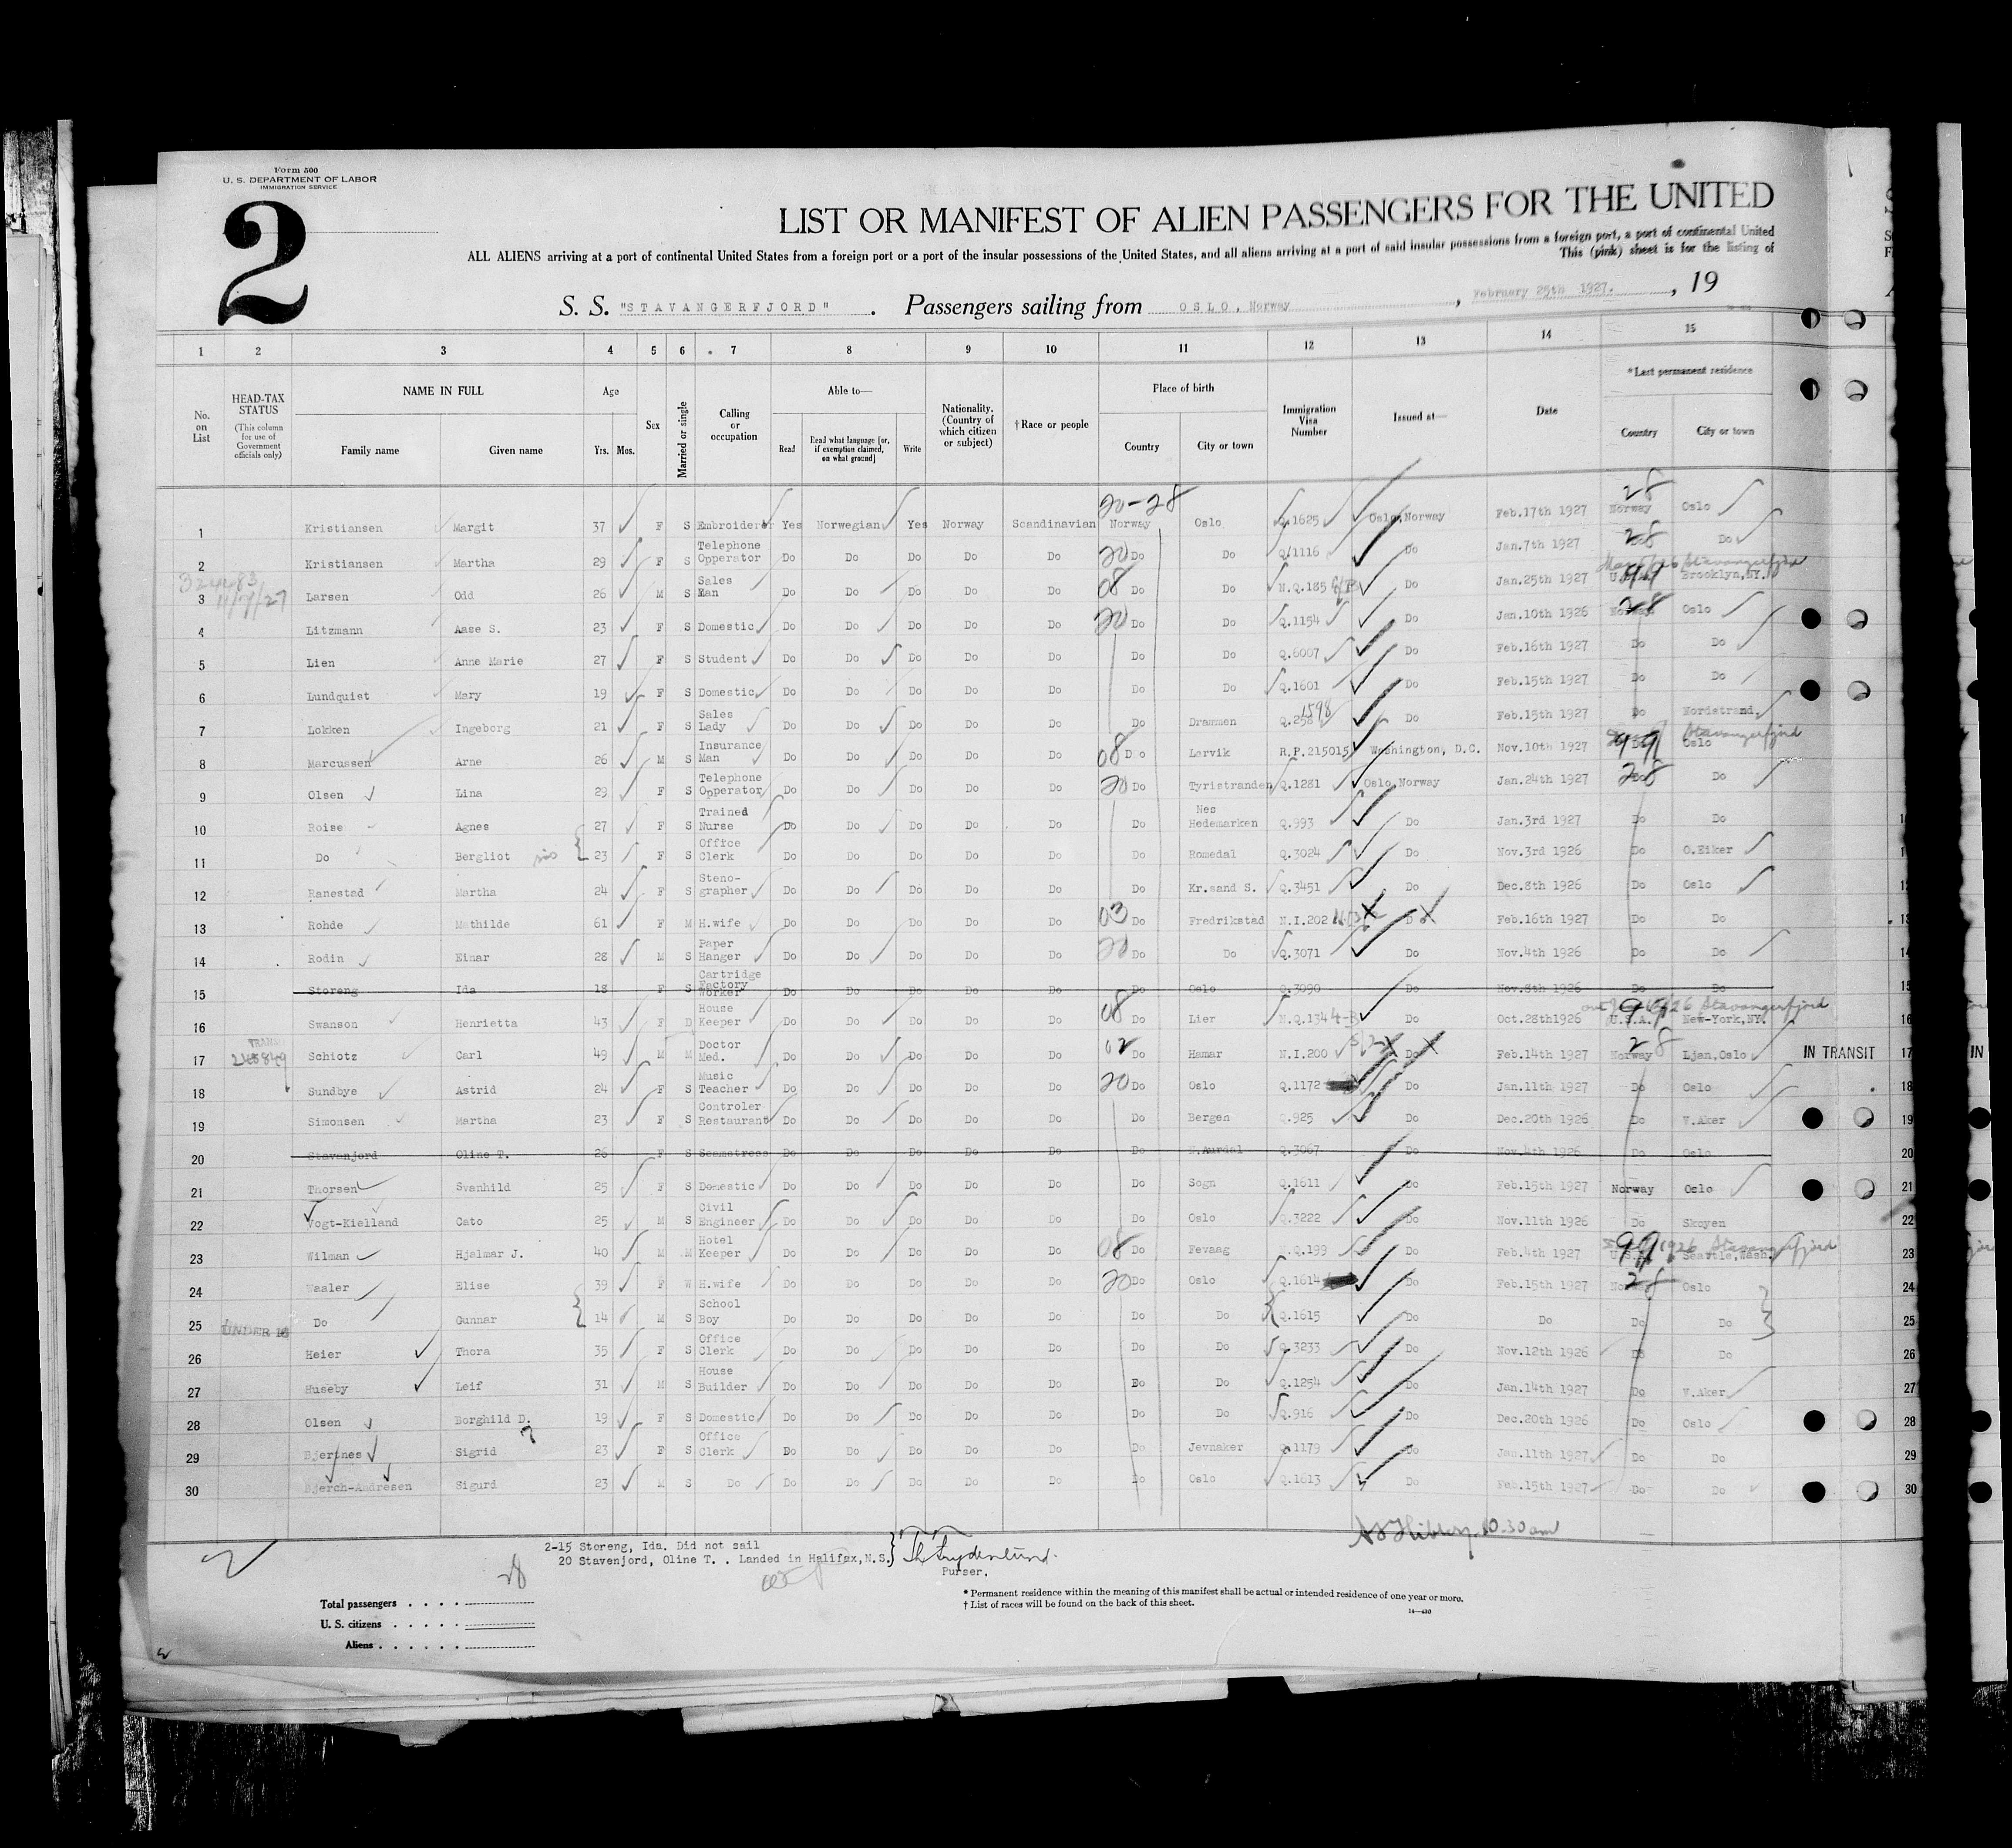 Form 500
U. S. DEPARTMENT OF LABOR
IMMIGRATION SERVICE
2
LIST OR MANIFEST OF ALIEN PASSENGERS FOR THE UNITED
ALL ALIENS arriving at a port of continental United States from a foreign port or a port of the insular possessions of the United States, and all aliens arriving at a port of said insular possessions from a foreign port, a port of continental United
This (pink) sheet is for the listing of
S. S. "STAVANGERFJORD". Passengers sailing from OSLO, Norway, February 25th 1927., 19
1 2 3 4 5 6 7 8 9 10 11 12 13 14 15
No. on List
HEAD-TAX STATUS (This column for use of Government officials only)
NAME IN FULL Family name Given name
Age Yrs. Mos.
Sex
Married or single
Calling or occupation
Able to— Read Read what language [or, if exemption claimed, on what ground] Write
Nationality. (Country of which citizen or subject)
†Race or people
Place of birth Country City or town
Immigration Visa Number
Issued at—
Date
*Last permanent residence Country City or town
20-28 28
1 Kristiansen Margit 37 F S Embroiderer Yes Norwegian Yes Norway Scandinavian Norway Oslo Q.1625 Oslo,Norway Feb.17th 1927 Norway Oslo
2 Kristiansen Martha 29 F S Telephone Opperator Do Do Do Do Do 20 Do Do Q.1116 Do Jan.7th 1927 28 Do Do
3 Larsen Odd 26 M S Sales Man Do Do Do Do Do 08 Do Do N.Q.185 Do Jan.25th 1927 99 Brooklyn,NY. Stavangerfjord
4 Litzmann Aase S. 23 F S Domestic Do Do Do Do Do 20 Do Do Q.1154 Do Jan.10th 1926 Norway 28 Oslo
5 Lien Anne Marie 27 F S Student Do Do Do Do Do Do Do Q.6007 Do Feb.16th 1927 Do Do
6 Lundquist Mary 19 F S Domestic Do Do Do Do Do Do Do Q.1601 Do Feb.15th 1927 Do Do
7 Lokken Ingeborg 21 F S Sales Lady Do Do Do Do Do Do Drammen 1598 Do Feb.15th 1927 Do Nordstrand,
8 Marcussen Arne 26 M S Insurance Man Do Do Do Do Do 08 Do Larvik R.P.215015 Washington, D.C. Nov.10th 1927 99 Do Oslo Stavangerfjord
9 Olsen Lina 29 F S Telephone Opperator Do Do Do Do Do 20 Do Tyristranden Q.1281 Oslo,Norway Jan.24th 1927 28 Do Do
10 Roise Agnes 27 F S Trained Nurse Do Do Do Do Do Do Nes Hedemarken Q.993 Do Jan.3rd 1927 Do Do
11 Do Bergliot sis 23 F S Office Clerk Do Do Do Do Do Do Romedal Q.3024 Do Nov.3rd 1926 Do O.Eiker
12 Ranestad Martha 24 F S Steno-grapher Do Do Do Do Do Do Kr.sand S. Q.3451 Do Dec.8th 1926 Do Oslo
13 Rohde Mathilde 61 F M H.wife Do Do Do Do Do 03 Do Fredrikstad N.I.202 Do Feb.16th 1927 Do Do
14 Rodin Einar 28 M S Paper Hanger Do Do Do Do Do 20 Do Do Q.3071 Do Nov.4th 1926 Do Do
15 Storeng Ida 18 F S Cartridge Factory Worker Do Do Do Do Do Do Oslo Q.3090 Do Nov.8th 1926 Do Do
16 Swanson Henrietta 43 F D House Keeper Do Do Do Do Do 08 Do Lier N.Q.134 4-B Do Oct.28th1926 99 U.S.A. New-York,NY. Stavangerfjord
17 Schiotz Carl 49 M M Doctor Med. Do Do Do Do Do 02 Do Hamar N.I.200 Do Feb.14th 1927 Norway 28 Ljan,Oslo IN TRANSIT 17
18 Sundbye Astrid 24 F S Music Teacher Do Do Do Do Do 20 Do Oslo Q.1172 Do Jan.11th 1927 Do Oslo 18
19 Simonsen Martha 23 F S Controler Restaurant Do Do Do Do Do Do Bergen Q.925 Do Dec.20th 1926 Do V.Aker 19
20 Stavenjord Oline T. 26 F S Seamstress Do Do Do Do Do Do N.Aurdal Q.3067 Do Nov.4th 1926 Do Oslo 20
21 Thorsen Svanhild 25 F S Domestic Do Do Do Do Do Do Sogn Q.1611 Do Feb.15th 1927 Norway Oslo 21
22 Vogt-Kielland Cato 25 M S Civil Engineer Do Do Do Do Do Do Oslo Q.3222 Do Nov.11th 1926 Do Skoyen 22
23 Wilman Hjalmar J. 40 M M Hotel Keeper Do Do Do Do Do 08 Do Fevaag Q.199 Do Feb.4th 1927 99 U.S.A. Seattle,Wash. 1926 Stavangerfjord 23
24 Wasler Elise 39 F W H.wife Do Do Do Do Do 20 Do Oslo Q.1614 Do Feb.15th 1927 Norway 28 Oslo 24
25 UNDER 16 Do Gunnar 14 M S School Boy Do Do Do Do Do Do Do Q.1615 Do Do Do Do 25
26 Heier Thora 35 F S Office Clerk Do Do Do Do Do Do Do Q.3233 Do Nov.12th 1926 Do Do 26
27 Huseby Leif 31 M S House Builder Do Do Do Do Do Do Do Q.1254 Do Jan.14th 1927 Do V.Aker 27
28 Olsen Borghild D. 19 F S Domestic Do Do Do Do Do Do Do Q.916 Do Dec.20th 1926 Do Oslo 28
29 Bjertnes Sigrid 23 F S Office Clerk Do Do Do Do Do Do Jevnaker Q.1179 Do Jan.11th 1927 Do Do 29
30 Bjerch-Andresen Sigurd 23 M S Do Do Do Do Do Do Do Oslo Q.1613 Do Feb.15th 1927 Do Do 30
10-30 am
2-15 Storeng, Ida. Did not sail
20 Stavenjord, Oline T. . Landed in Halifax,N.S.
Purser.
28
Total passengers . . . .
U. S. citizens . . . . .
Aliens . . . . . .
* Permanent residence within the meaning of this manifest shall be actual or intended residence of one year or more.
† List of races will be found on the back of this sheet.
14—430